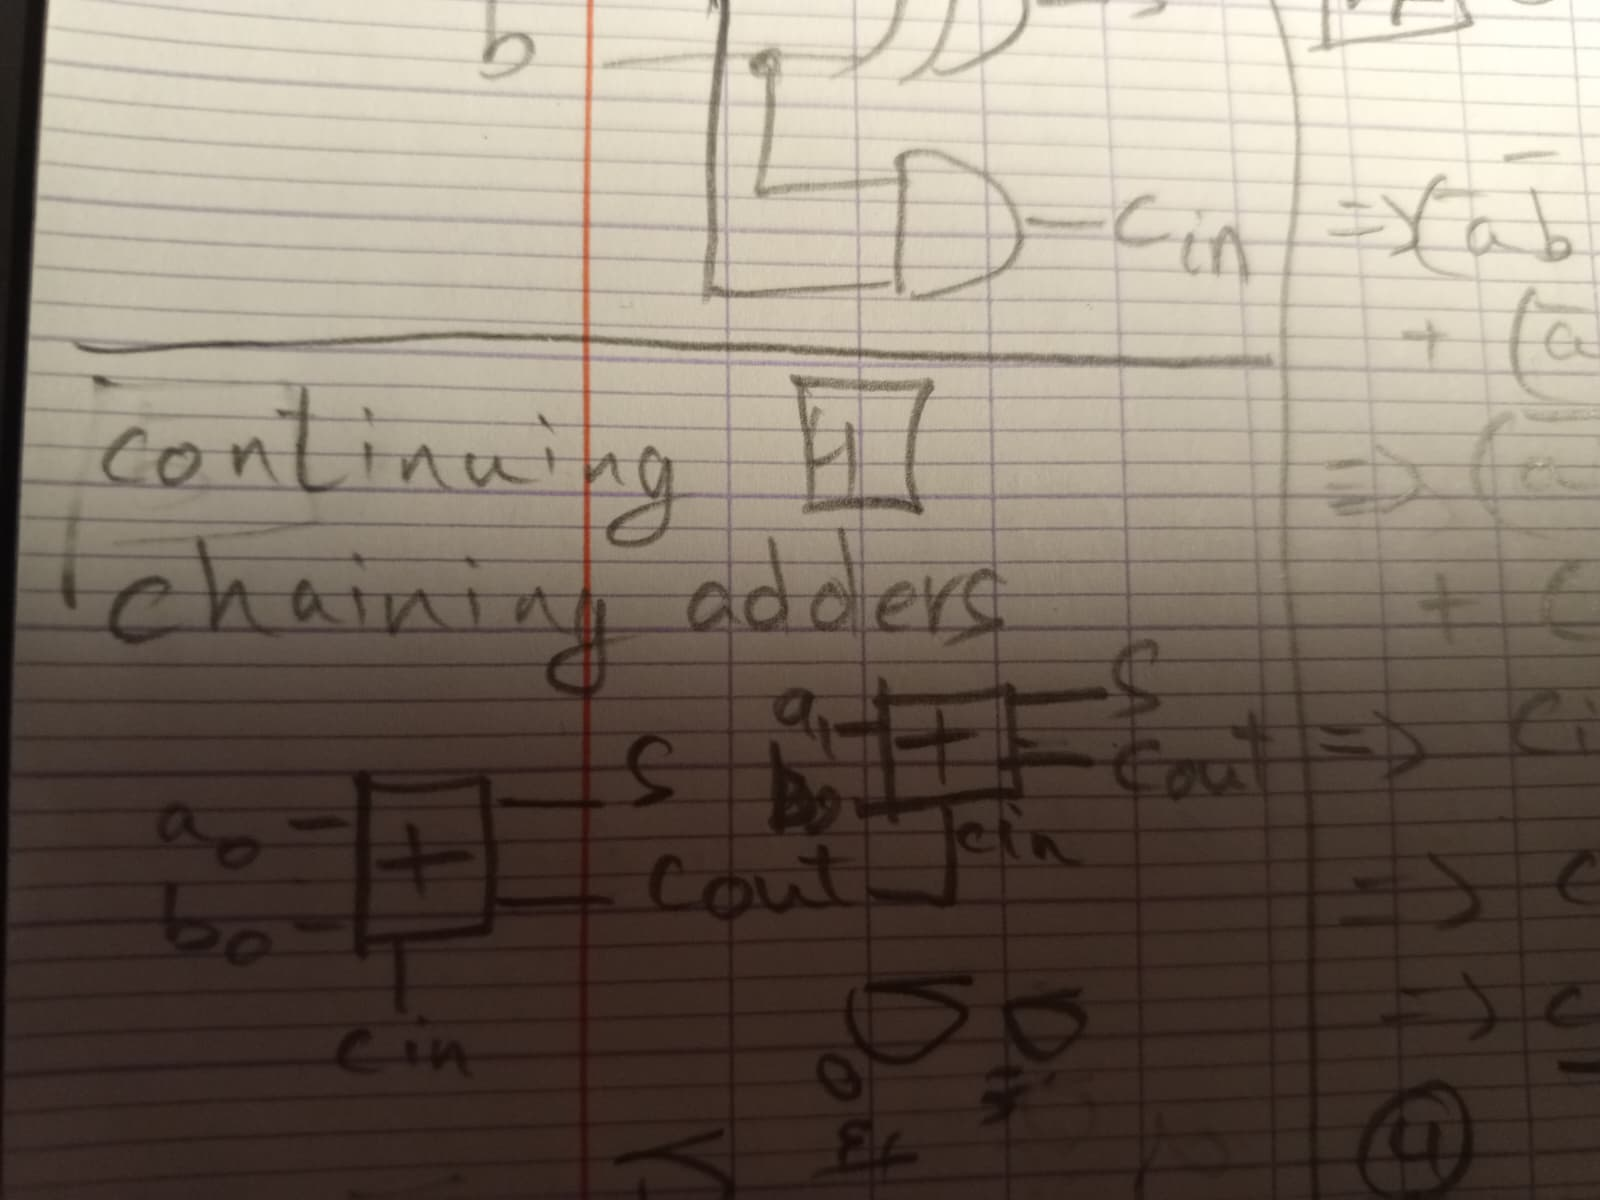 b
cin
continuing 4
chaining adders
a1 + S
cout
cin
a0 + S
b0 cout
cin
=> (ab
+ (a
=> (a
+ (
=> ci
=> c
=> c
4